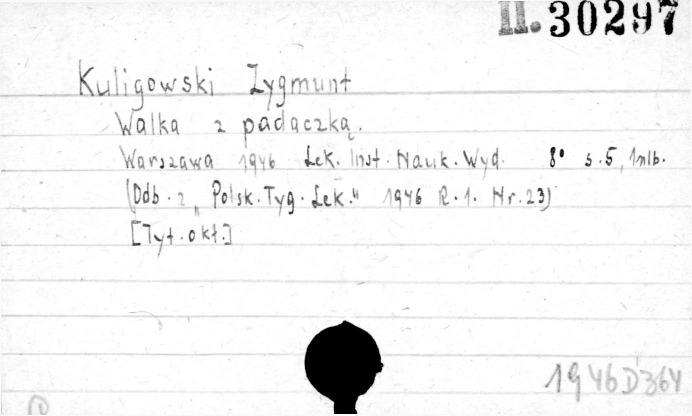 II. 30297
Kuligowski Zygmunt
Walka z padaczką.
Warszawa 1946 Lek. Inst. Nauk. Wyd. 8° s. 5, 1 nlb.
(Odb. z „Polsk. Tyg. Lek." 1946 R. 1. Nr. 23)
[Tyt. okł.]
1946 D 364